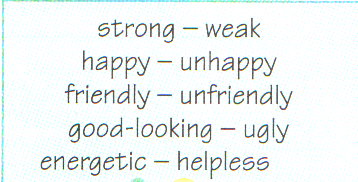 strong – weak
happy – unhappy
friendly – unfriendly
good-looking – ugly
energetic – helpless